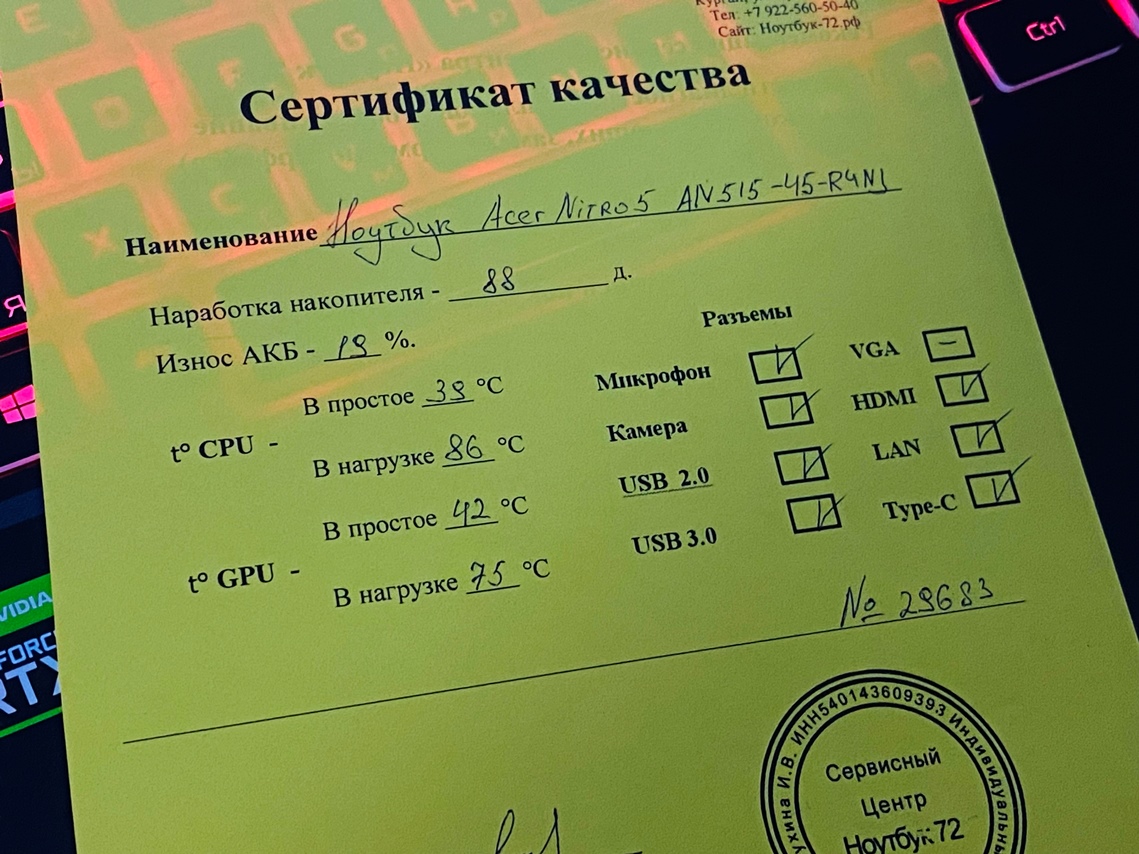 Тел: +7 922-560-50-40
Сайт: Ноутбук-72.рф
Ctrl
Сертификат качества
Наименование Ноутбук Acer Nitro5 AN515-45-R4N1
Наработка накопителя - 88 д.
Износ АКБ - 19 %.
t° CPU -
В простое 39 °C
В нагрузке 86 °C
t° GPU -
В простое 42 °C
В нагрузке 75 °C
Разъемы
Микрофон
Камера
USB 2.0
USB 3.0
VGA –
HDMI
LAN
Type-C
№ 29683
И.В. ИНН540143609393 Индивидуальны
Сервисный
Центр
Ноутбук72
Я